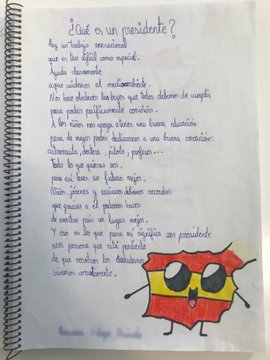 ¿Qué es un presidente?
Es un trabajo sensacional
que es tan difícil como especial.
Ayuda claramente
a que cuidemos al medioambiente.
Nos hace obedecer las leyes que todos debemos de cumplir
para poder pacíficamente convivir.
A los niños nos apoya a tener una buena educación
para de mayor poder dedicarnos a una buena vocación.
Astronauta, doctora, piloto, profesor...
Todo lo que quieras ser,
para así tener un futuro mejor.
Niños, jóvenes y mayores debemos recordar
que gracias a él podemos hacer
de nuestro país un lugar mejor.
Y eso es lo que para mí significa ser presidente
una persona que está pendiente
de que nosotros los ciudadanos
vivamos correctamente.